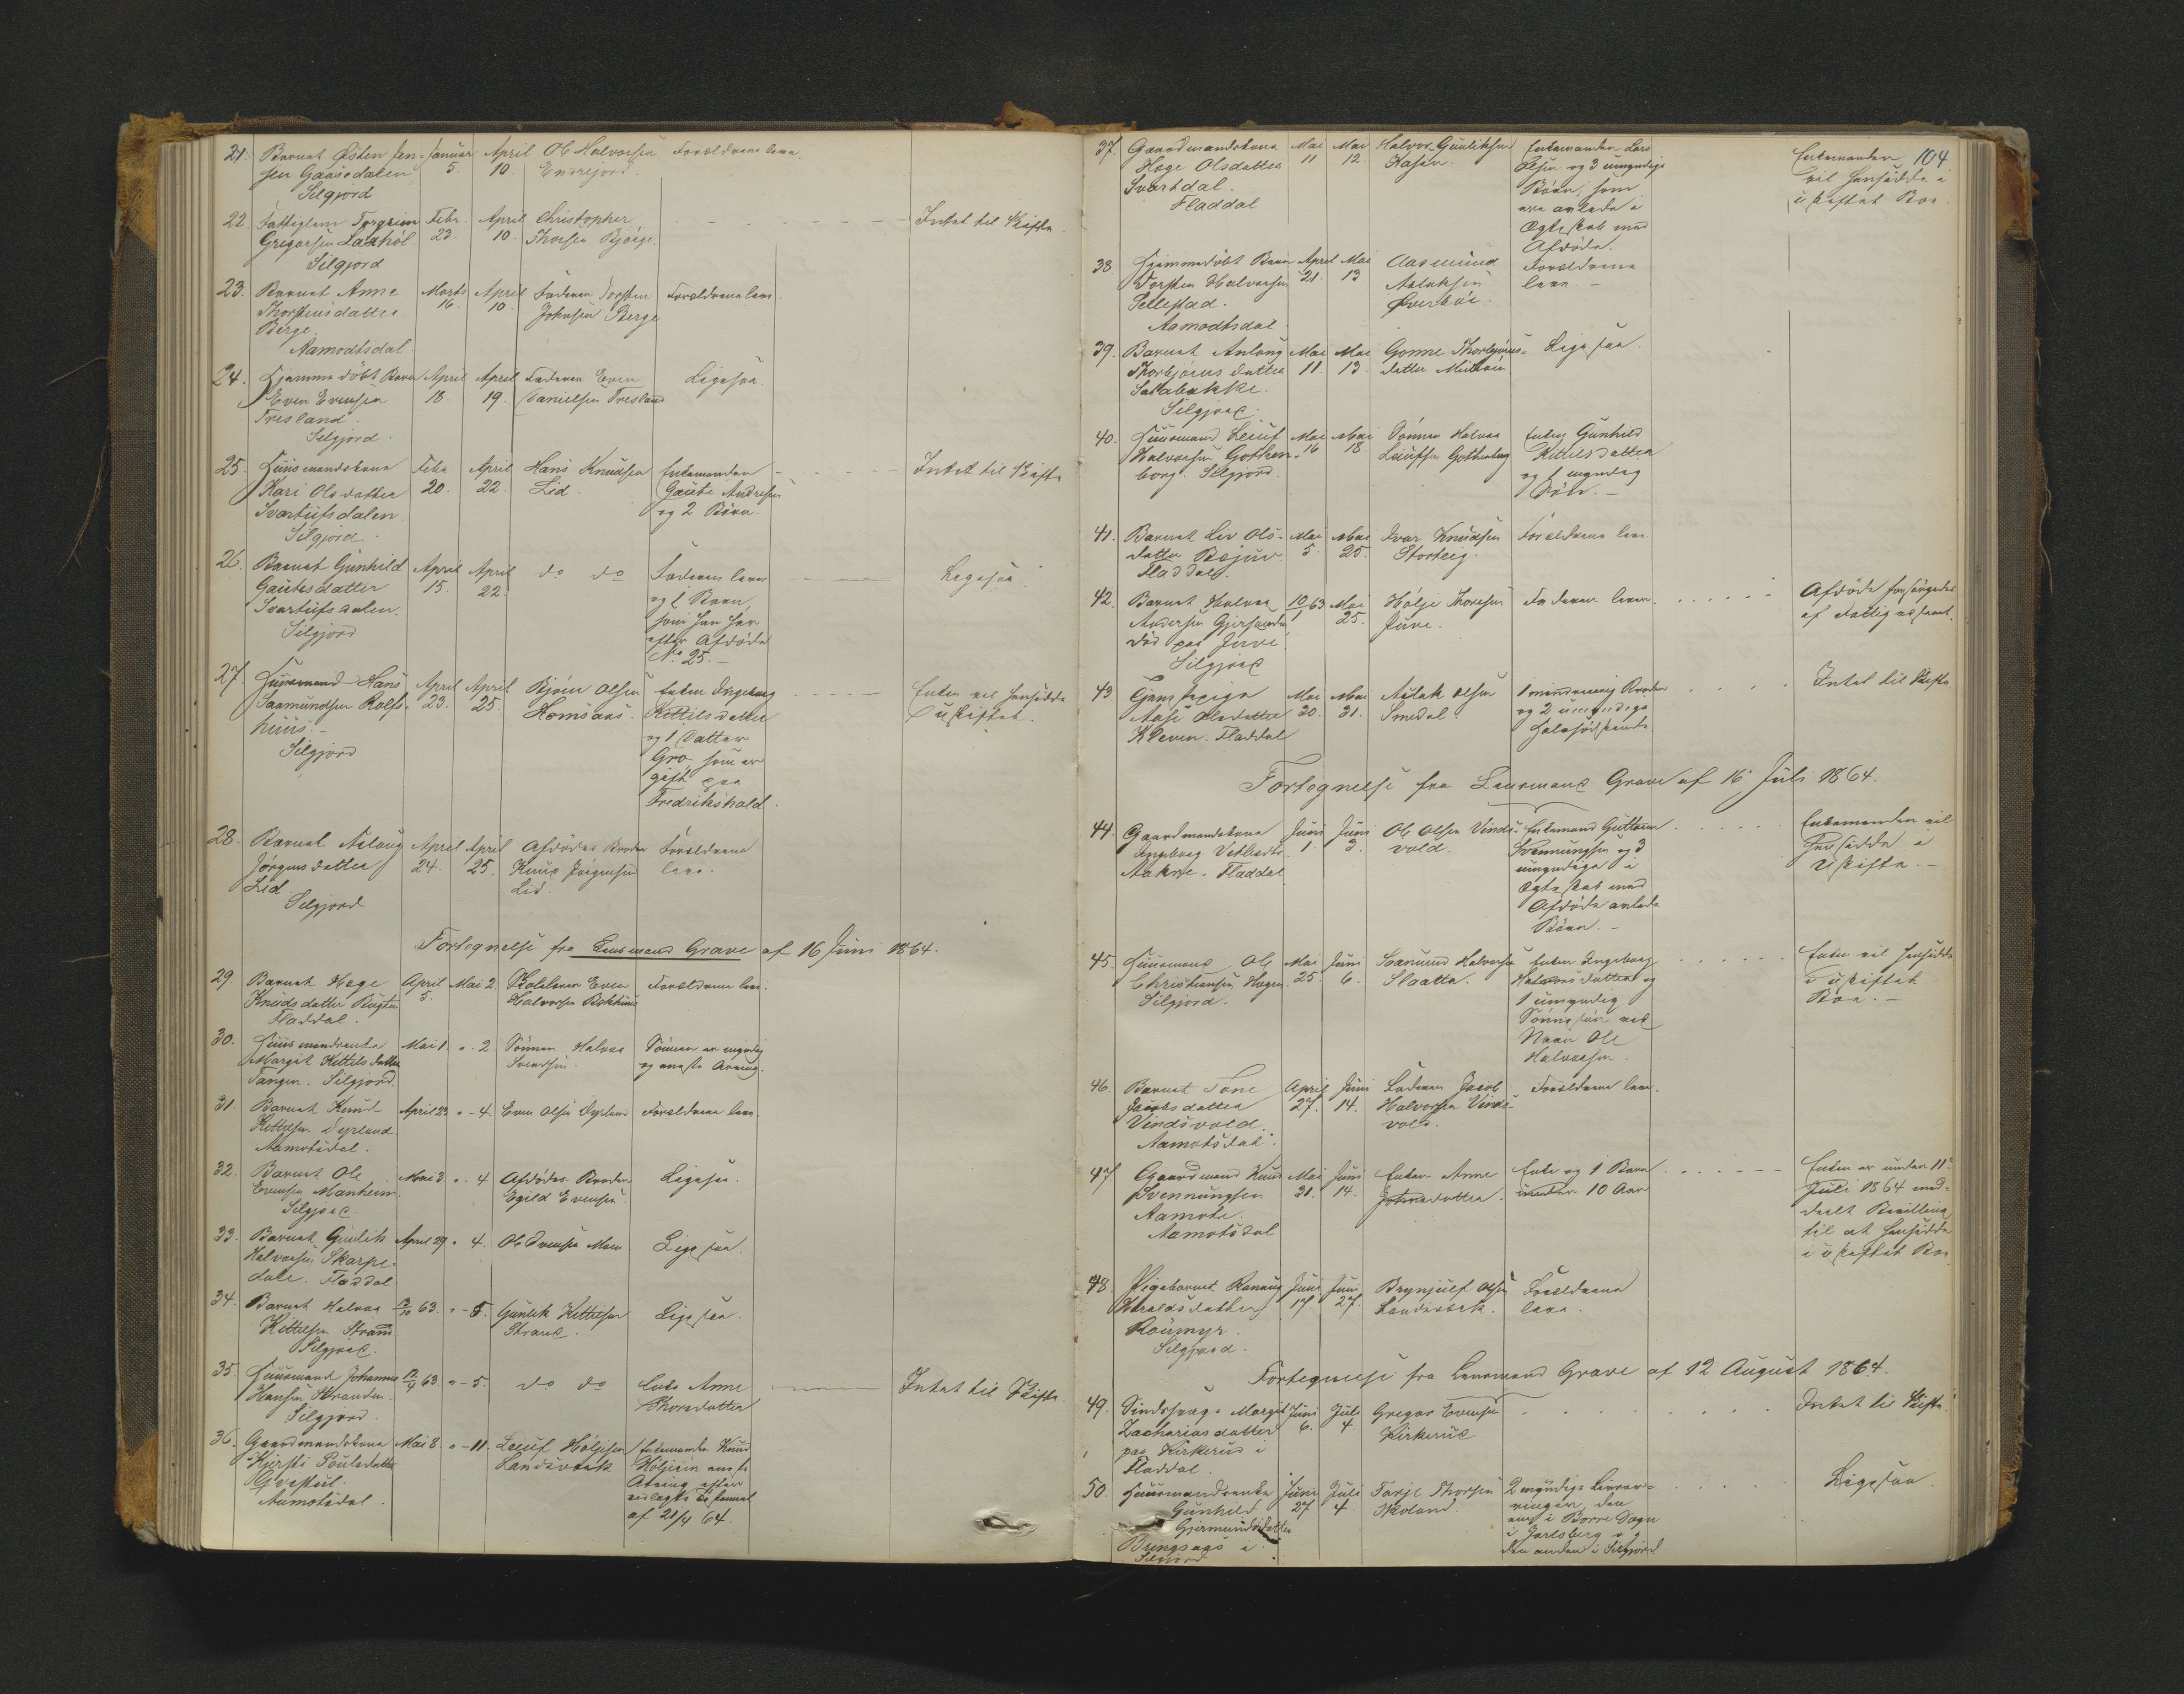 21. Barnet Østen Jen- Januar April Ole Halvorsen Forældrene leve.
sen Gaasedalen 5 10.
Silgjord
22. Fattiglem Torgrim Febr. April Christopher Intet til Skifte.
Gregarsen Laxhól 23. 10. Thorsen Bjórge.
Silgjord
23. Barnet Anne Marts April Faderen Torsten Forældrene leve.
Thorsteinsdatter 16. 10. Johnsen Berge
Berge.
Aamodtsdal.
24. Hjemmedöbt Barn April April Faderen Even Ligesaa.
Even Evensen 18. 19. Danielsen Tresland
Tresland.
Silgjord.
25. Huusmandskone Febr. April Hans Knudsen Enkemanden Intet til Skifte
Kari Olsdatter 20. 22. Lid. Gaute Andersen
Svartufsdalen og 2 Börn.
Silgjord.
26. Barnet Gunhild April April do do Faderen lever Ligesaa.
Gautesdatter 15. 22. og 1 Barn,
Svartufsdalen. som han har
Silgjord efter Afdöde
No. 25.
27. Huusmand Hans April April Bjórn Olsen Enken Ingeborg Enken vil hensidde
Saamundsen Rolfs- 23. 25. Homsaas. Kittilsdatter i uskiftet.
huus. og 1 Datter
Silgjord Gro, som er
gift paa
Fredrikshald.
28. Barnet Aslaug April April Afdödes Broder Forældrene
Jörgensdatter 24. 25. Knud Jörgensen leve.
Lid. Lid.
Silgjord
Fortegnelse fra Lensmand Grave af 16 Juni 1864.
29. Barnet Hege April Mai 2. Skolelærer Even Forældrene leve.
Knudsdatter 5. Halvorsen Bakhuus
Fladdal.
30. Huusmandsenke Mai 1. " 2. Sönnen Halvor Sönnen er myndig
Margit Kittilsdatter Svendsen. og eneste Arving.
Tangen. Silgjord.
31. Barnet Knud April 23 " - 4. Even Olsen Dyrland Forældrene leve.
Kittilsen Dyrland.
Aamotsdal.
32. Barnet Ole Mai 3 " . 4 Afdödes Broder Ligesaa.
Evensen Manheim. Egild Evensen.
Silgjord.
33. Barnet Gunlik April 29 " 4. Ole Svensen Moen Ligesaa.
Halvorsen Skarpe-
dale. Fladdal
34. Barnet Halvor 63. " - 5. Gunlik Kittilsen Ligesaa.
Kittilsen Strand Strand.
Silgjord.
35. Huusmand Johannes 12/4 63. " - 5. do do Enke Anne Intet til Skifte
Hansen Stranden. Thorsdatter
Silgjord.
36. Gaardmandskone Mai 8. " - 11. Leiuf Höljesen Enkemanden Knud
Kjersti Poulsdatter Landsverk Höljesen eneste
Arving efter
Aamotsdal. vedlagte Testament
af 21/4 64.
104
37. Gaardmandskone Mai Mai Halvor Gunliksen Enkemanden Lars Enkemanden
Hæge Olsdatter 11 12. Kasin. Olsen og 3 umyndige vil hensidde i
Svartdal. Börn, som uskiftet Boe.
Fladdal ere avlede i
Ægteskab med
Afdöde.
38. Hjemmedöbt Barn April Mai Aasmund Forældrene
Torsten Halvorsen 21. 13 Aslaksen leve. -
Sellestad. Överböe.
Aamodtsdal
39. Barnet Anlaug Mai Mai Gonne Thorbjörns- Ligesaa.
Thorbjörnsdatter 11. 13. datter
Silgjord.
40. Huusmand Leiuf Mai Mai Sönnen Halvor Enke Gunhild
Halvorsen Gothen- 16 18. Leiufsen Gothenborg Kittilsdatter
borg. Silgjord og 1 myndig
Sön. -
41. Barnet Liv Ols- Mai Mai Ivar Knudsen Forældrene leve.
datter Bojuv 5. 25. Storteig.
Fladdal.
42. Barnet Halvor 10/1 63 Mai Hölje Thorsen Faderen lever. Afdöde forsörgedes
Andersen 25. Juve. af Fattigvæsenet.
död paa Juve
Silgjord
43. Mai Mai Aslak Olsen 1 mindreaarig Broder Intet til Skifte
Aase Olsdatter 20. 31. Smedal. og 2 umyndige
Kleven. Fladdal Halvsödskende.
Fortegnelse fra Lensmand Grave af 16. Juli 1864.
44. Gaardmandskone Juni Juni Ole Olsen Vinds- Enkemand Guttorm Enkemanden vil
Ingeborg Vetlesdtr. 1. 3. vold. Svennungsen og 3 hensidde i
Aakre. Fladdal umyndige i Uskifte. -
Ægteskab med
Afdöde avlede
Börn. -
45. Huusmand Ole Mai Juni Saamund Halvorsen Enken Ingeborg Enken vil hensidde
Christiansen Hagen. 25. 6. Slaatta. Halvorsdatter og i uskiftet
Silgjord. 1 umyndig Boe. -
Sönnesön ved
Navn Ole
Halvorsen.
46. Barnet Tone April Juni Faderen Jacob Forældrene leve.
Jacobsdatter 27. 14. Halvorsen Vinds-
Vindsvold. vold.
Aamotsdal.
47 Gaardmand Knud Mai Juni Enken Anne Enke og 1 Barn Enken er under 11te
Svennungsen 31. 14. Johnsdatter. under 10 Aar Juli 1864 med-
Aamote. deelt Bevilling
Aamotsdal til at hensidde
i uskiftet Boe
48. Pigebarnet Ranaug Juni Juni Brynjulf Olsen Forældrene
Haraldsdatter 17 27. Landsverk. leve.
Roümyr.
Silgjord.
Fortegnelse fra Lensmand Grave af 12 August 1864.
49. Sindssvag Margit Juni Juli Gregar Evensen Intet til Skifte.
Zachariasdatter 6. 4. Kirkerud
paa Kirkerud i
Fladdal.
50. Huusmandsenke Juni Juli Tarje Thorsen 2 myndige Livsar- Ligesaa
Gunhild 27. 4. Skoland vinger, den
Gjermundsdatter ene i Borre Sogn
Bringsaas i i Jarlsberg og
Silgjord den anden i Silgjord